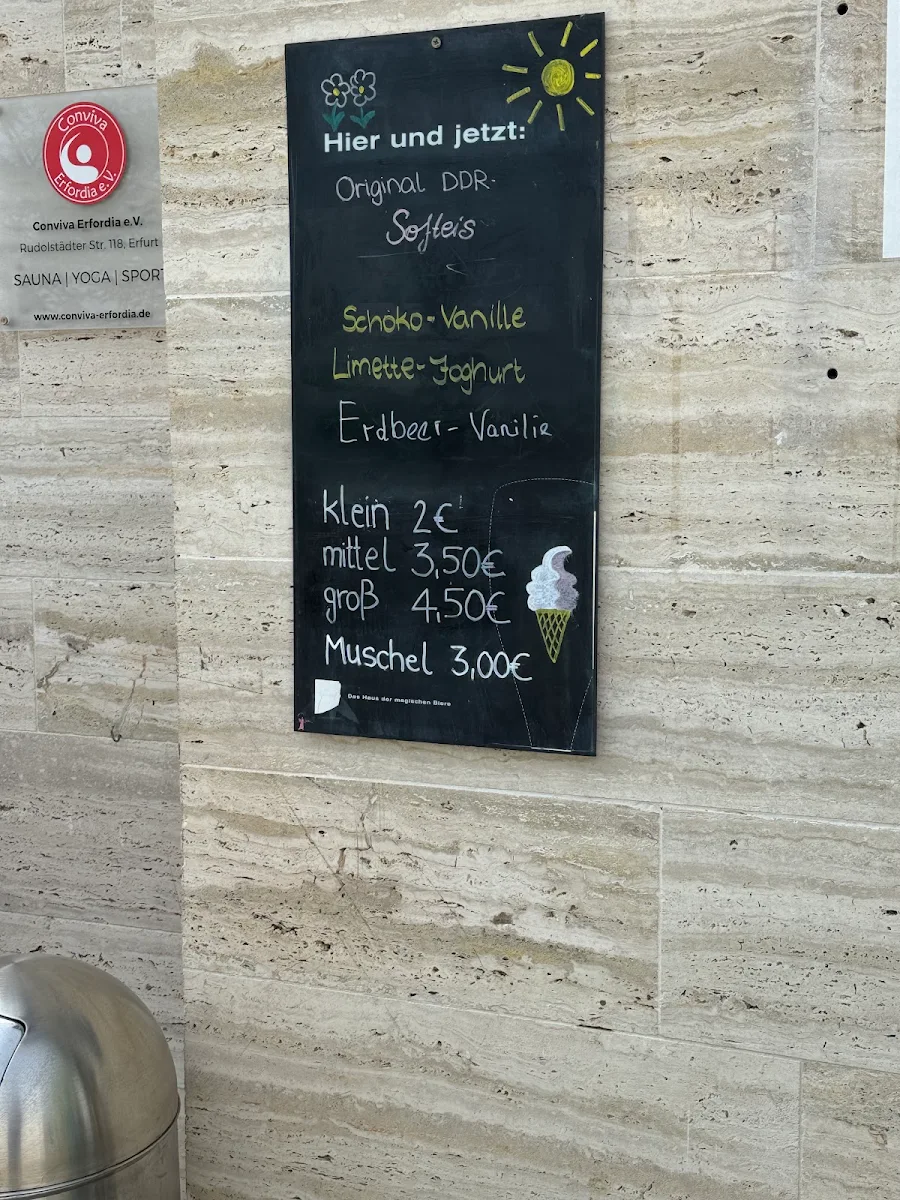 Conviva
Erfordia e.V.
Conviva Erfordia e.V.
Rudolstädter Str. 118, Erfurt
SAUNA | YOGA | SPORT
www.conviva-erfordia.de
Hier und jetzt:
Original DDR-
Softeis
Schoko-Vanille
Limette-Joghurt
Erdbeer-Vanille
klein 2€
mittel 3,50€
groß 4,50€
Muschel 3,00€
Das Haus der magischen Biere